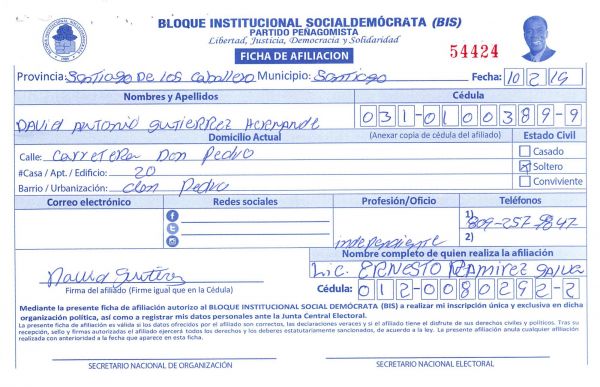 BLOQUE INSTITUCIONAL SOCIALDEMÓCRATA (BIS)
PARTIDO PEÑAGOMISTA
Libertad, Justicia, Democracia y Solidaridad
FICHA DE AFILIACION
54424
Provincia: Santiago De Los Caballero Municipio: Santiago Fecha: 10/2/19
Nombres y Apellidos Cédula
DAVID ANTONIO GUTIERREZ HERNANDE 031-0100389-9
Domicilio Actual (Anexar copia de cédula del afiliado) Estado Civil
Calle: Carretera Don Pedro Casado
#Casa / Apt. / Edificio: 20 Soltero
Barrio / Urbanización: don Pedro Conviviente
Correo electrónico Redes sociales Profesión/Oficio Teléfonos
1) 809-257-9847
independiente 2)
Nombre completo de quien realiza la afiliación
Lic. ERNESTO RAMIREZ
Firma del afiliado (Firme igual que en la Cédula) Cédula: 012-0080292-2
Mediante la presente ficha de afiliación autorizo al BLOQUE INSTITUCIONAL SOCIAL DEMÓCRATA (BIS) a realizar mi inscripción única y exclusiva en dicha
organización política, así como a registrar mis datos personales ante la Junta Central Electoral.
La presente ficha de afiliación es válida si los datos ofrecidos por el afiliado son correctos, las declaraciones veraces y si el afiliado tiene el disfrute de sus derechos civiles y políticos. Tras su
recepción, sello y firmas autorizadas el afiliado ejercerá todos los derechos y los deberes estatutariamente sancionados, de acuerdo a la ley. La presente afiliación anula cualquier afiliación
realizada con anterioridad a la fecha que aparece en esta ficha.
SECRETARIO NACIONAL DE ORGANIZACIÓN SECRETARIO NACIONAL ELECTORAL